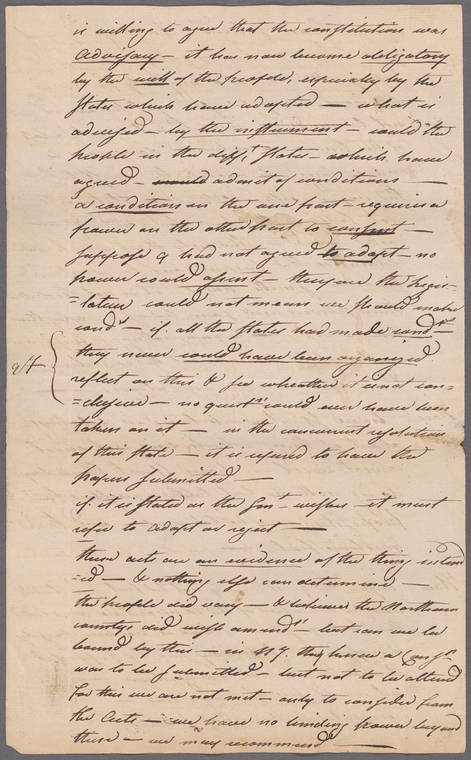 is willing to agree that the constitution was
advisary - it has now become obligatory
by the will of the people, especially by the
States which have adopted — what is
advised - by the instrument - could the
people in the diff.t States - which have
agreed - would admit of conditions —
a condition on the one part - requires a
power on the other part to consent -
suppose 9 had not agreed to adopt - no
power could assent - therefore the Legis-
=lature could not mean we should make
cond.s - if all the States had made cond.ns
they never could have been organized
reflect on this & see whether it is not con-
=clusive - no quest.n could ever have been
taken on it - in the concurrent resolutions
of this State - it is required to have the
papers submitted -
if it is stated as the Gen.t wishes it must
refer to adopt or reject —
these acts are an evidence of the thing intend
=ed - & nothing else can determine -
the people did vary - & believes the Northern
countys did wish amend.ts - but can we be
bound by this - in NY. they knew a Con
was to be submitted - but not to be altered
for this we are not met - only to consider from
the Acts - we have no binding power beyond
these - we may recommend —